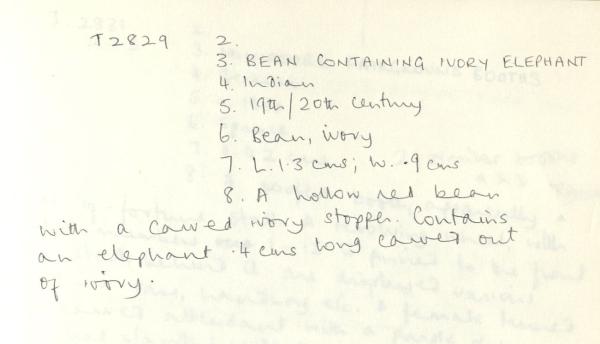 T2829 2.
3. BEAN CONTAINING IVORY ELEPHANT
4. Indian
5. 19th/20th century
6. Bean, ivory
7. L. 1.3 cms; W. .9 cms
8. A hollow red bean
with a carved ivory stopper. Contains
an elephant .4 cms long carved out
of ivory.